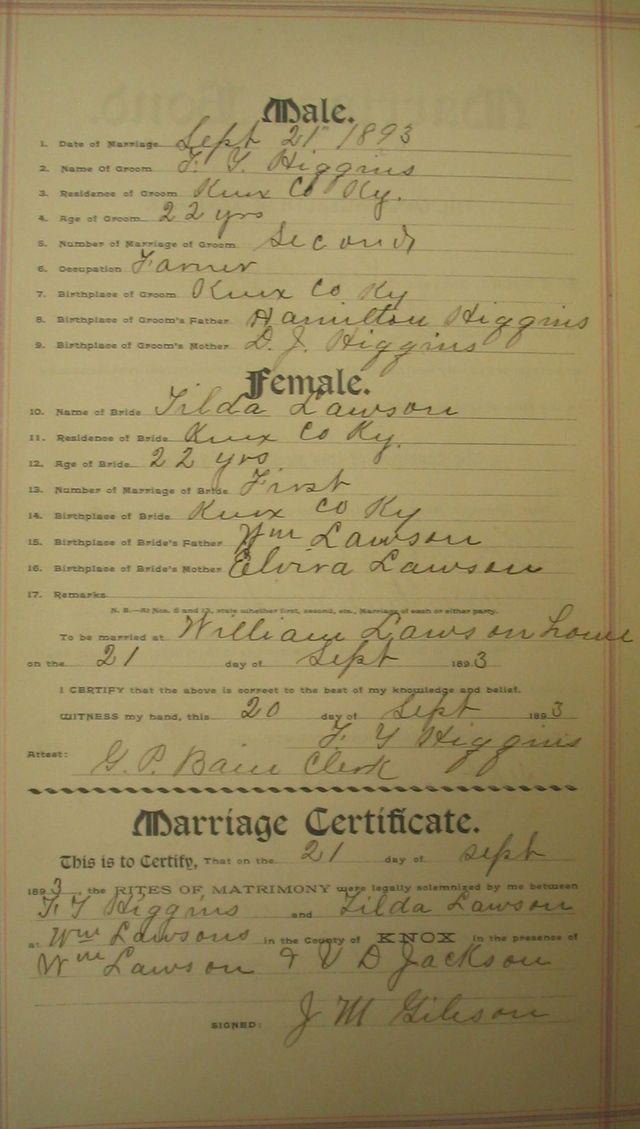 Male.
1. Date of Marriage Sept 21" 1893
2. Name Of Groom F. Y. Higgins
3. Residence of Groom Knox Co Ky.
4. Age of Groom 22 yrs
5. Number of Marriage of Groom Second
6. Occupation Farmer
7. Birthplace of Groom Knox Co Ky
8. Birthplace of Groom's Father Hamilton Higgins
9. Birthplace of Groom's Mother D. J. Higgins
Female.
10. Name of Bride Tilda Lawson
11. Residence of Bride Knox Co Ky.
12. Age of Bride 22 yrs
13. Number of Marriage of Bride First
14. Birthplace of Bride Knox Co Ky
15. Birthplace of Bride's Father Wm Lawson
16. Birthplace of Bride's Mother Elvira Lawson
17. Remarks
N. B.—At Nos. 5 and 13, state whether first, second, etc., Marriage of each or either party.
To be married at William Lawson home
on the 21 day of Sept 1893
I CERTIFY that the above is correct to the best of my knowledge and belief.
WITNESS my hand, this 20 day of Sept 1893
F Y Higgins
Attest: G. P. Bain Clerk
Marriage Certificate.
This is to Certify, That on the 21 day of Sept
1893, the RITES OF MATRIMONY were legally solemnized by me between
F Y Higgins and Tilda Lawson
at Wm Lawsons in the County of KNOX in the presence of
Wm Lawson & V D Jackson
SIGNED: J M Gibson